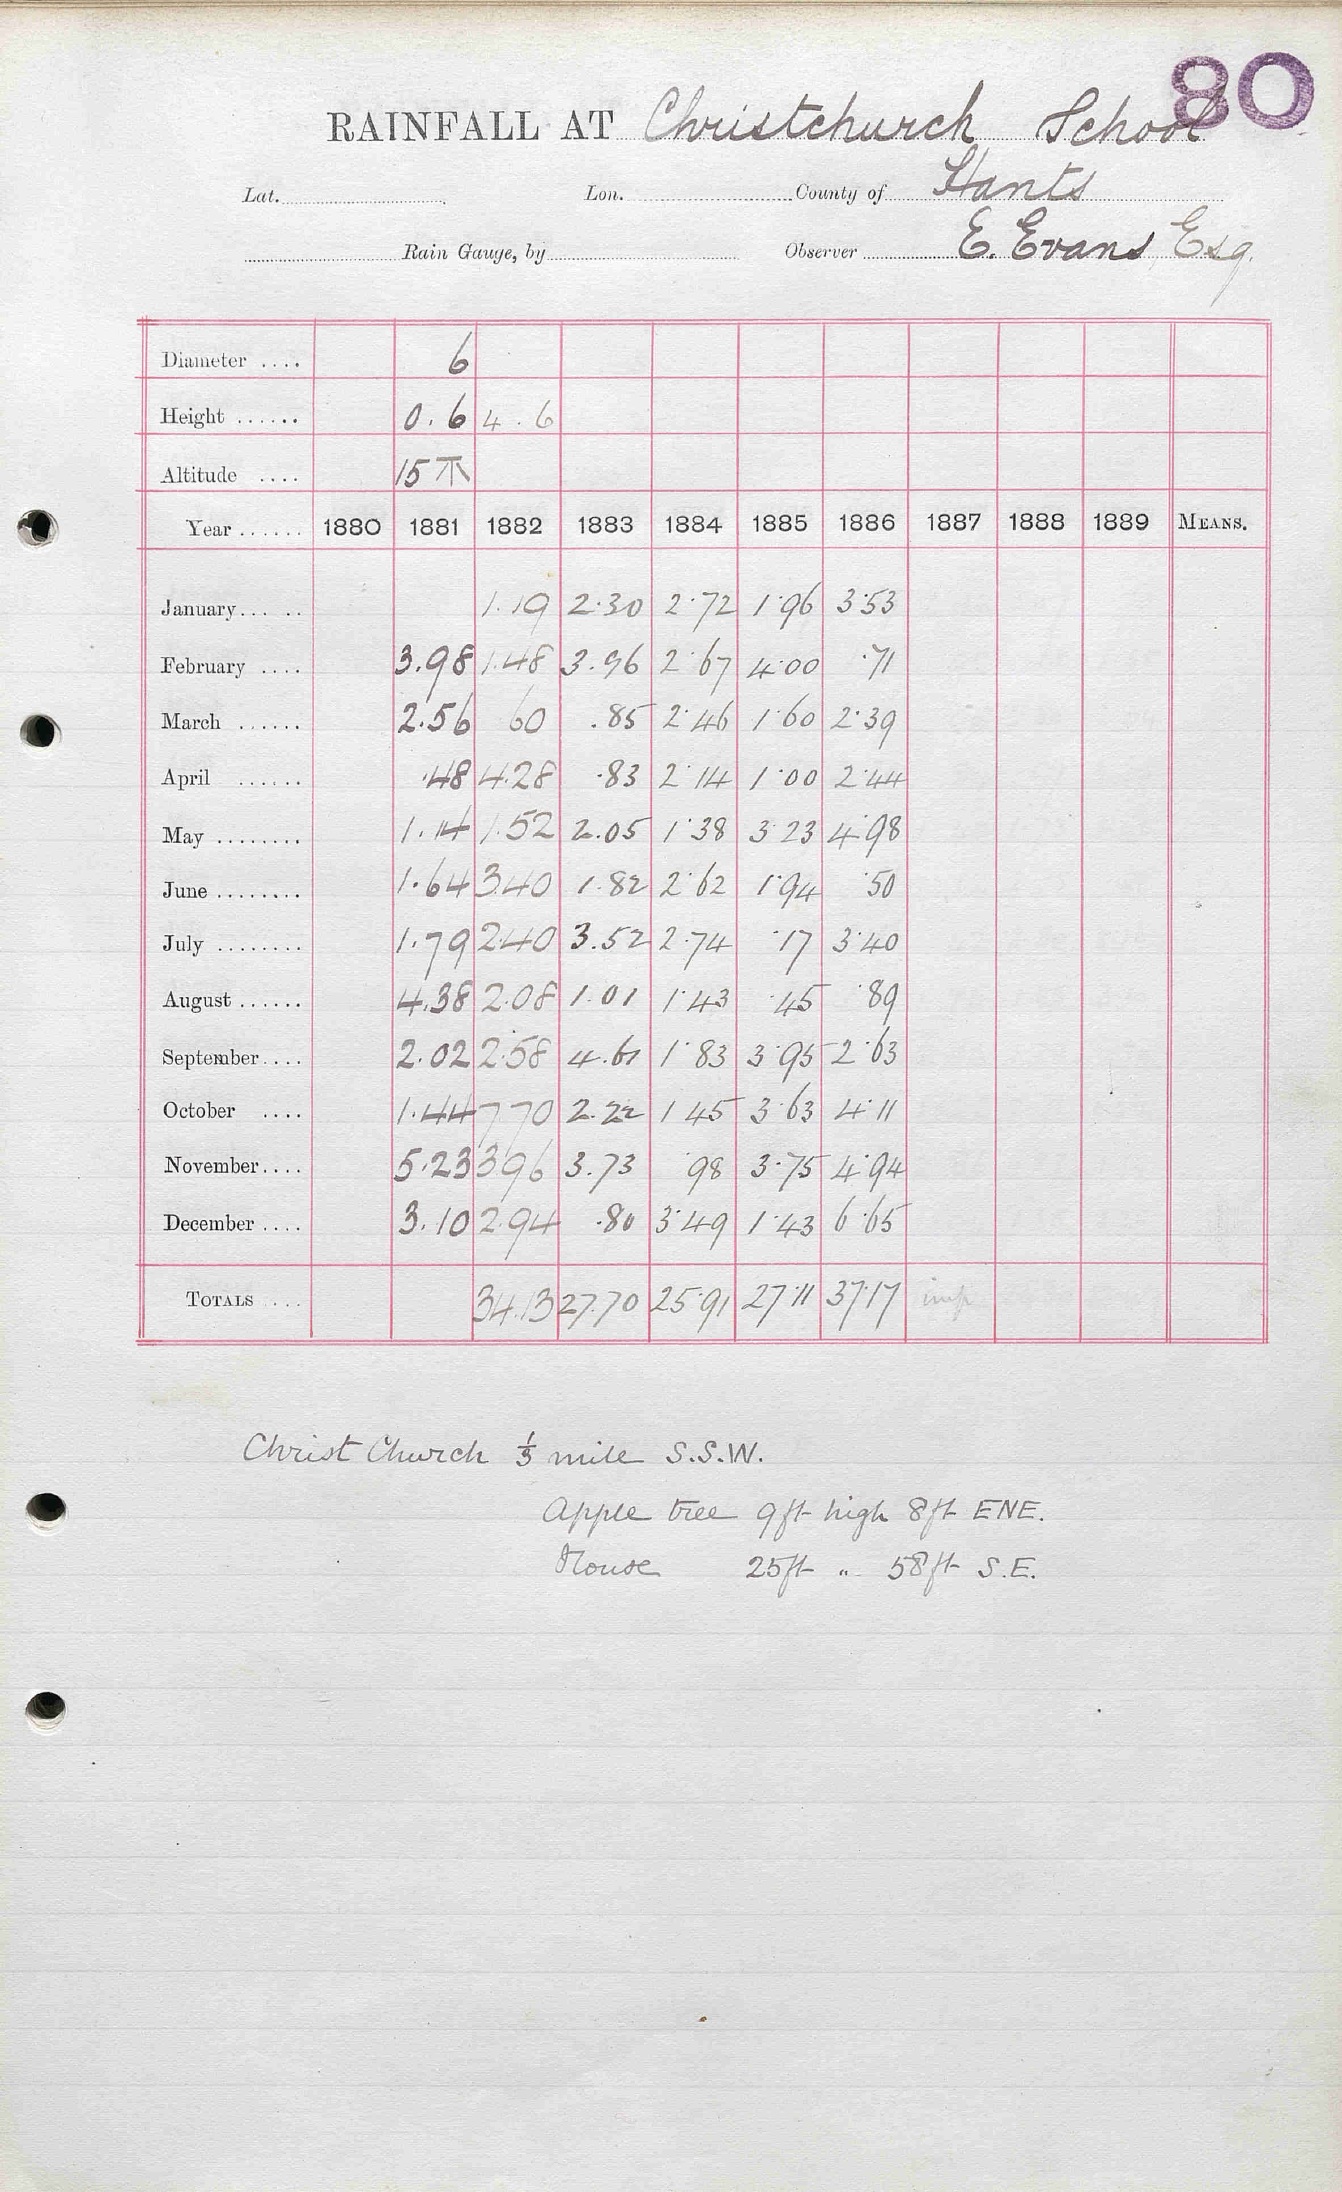 80
RAINFALL AT Christchurch School
Lat. Lon. County of Hants
Rain Gauge, by Observer E. Evans, Esq.
Diameter .... 6
Height ...... 0.6 4.6
Altitude .... 15
Year ...... 1880 1881 1882 1883 1884 1885 1886 1887 1888 1889 MEANS.
January... .. 1.19 2.30 2.72 1.96 3.53
February .... 3.98 1.48 3.96 2.67 4.00 .71
March ...... 2.56 60 .85 2.46 1.60 2.39
April ...... .48 4.28 .83 2.14 1.00 2.44
May ........ 1.14 1.52 2.05 1.38 3.23 4.98
June ........ 1.64 3.40 1.82 2.62 1.94 .50
July ........ 1.79 2.40 3.52 2.74 .17 3.40
August ...... 4.38 2.08 1.01 1.43 .45 .89
September.... 2.02 2.58 4.61 1.83 3.95 2.63
October .... 1.44 7.70 2.22 1.45 3.63 4.11
November.... 5.23 3.96 3.73 .98 3.75 4.94
December .... 3.10 2.94 .80 3.49 1.43 6.65
TOTALS ... 34.13 27.70 25.91 27.11 37.17 imp
Christ Church 1/3 mile S.S.W.
Apple tree 9ft high 8ft ENE.
House 25ft " 58ft S.E.